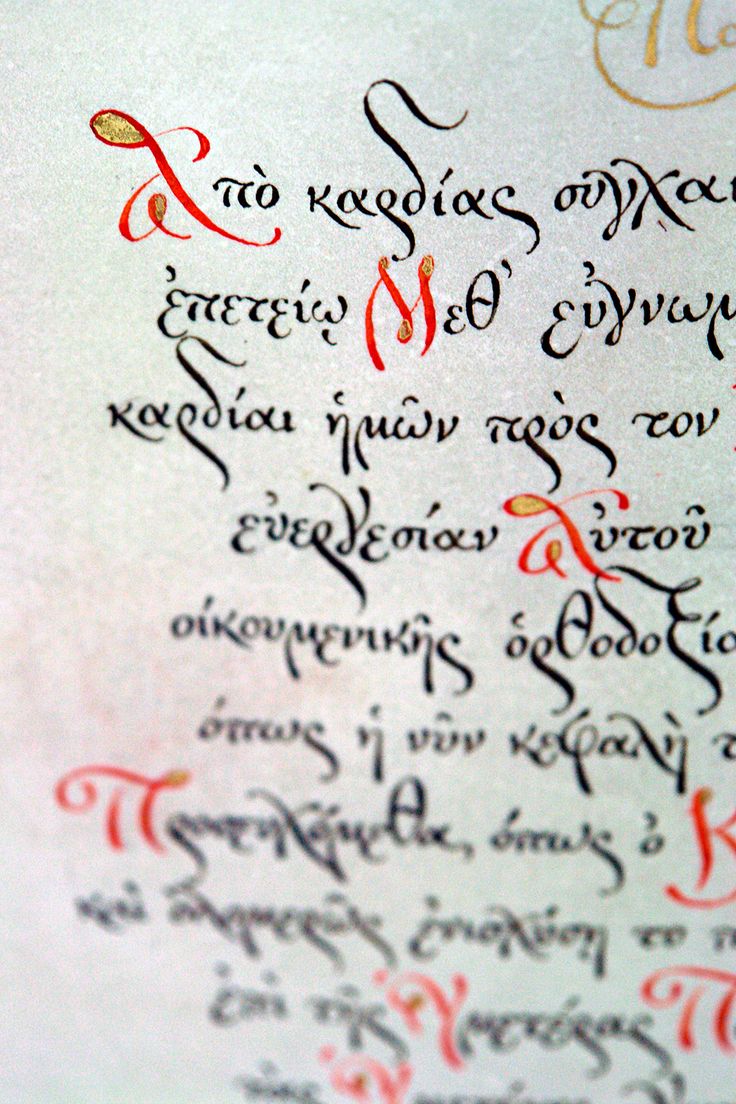 Πα
Ἀπὸ καρδίας συγχαι
ἐπετείῳ Μεθ' εὐγνωμ
καρδίαι ἡμῶν πρὸς τον
εὐεργεσίαν Αὐτοῦ
οἰκουμενικῆς ὀρθοδοξία
ὅπως ἡ νῦν κεφαλὴ τ
ὅπως ὁ
ἐνισχύσῃ το
ἐπὶ τῆς Ὑμετέρας Π
τῆς